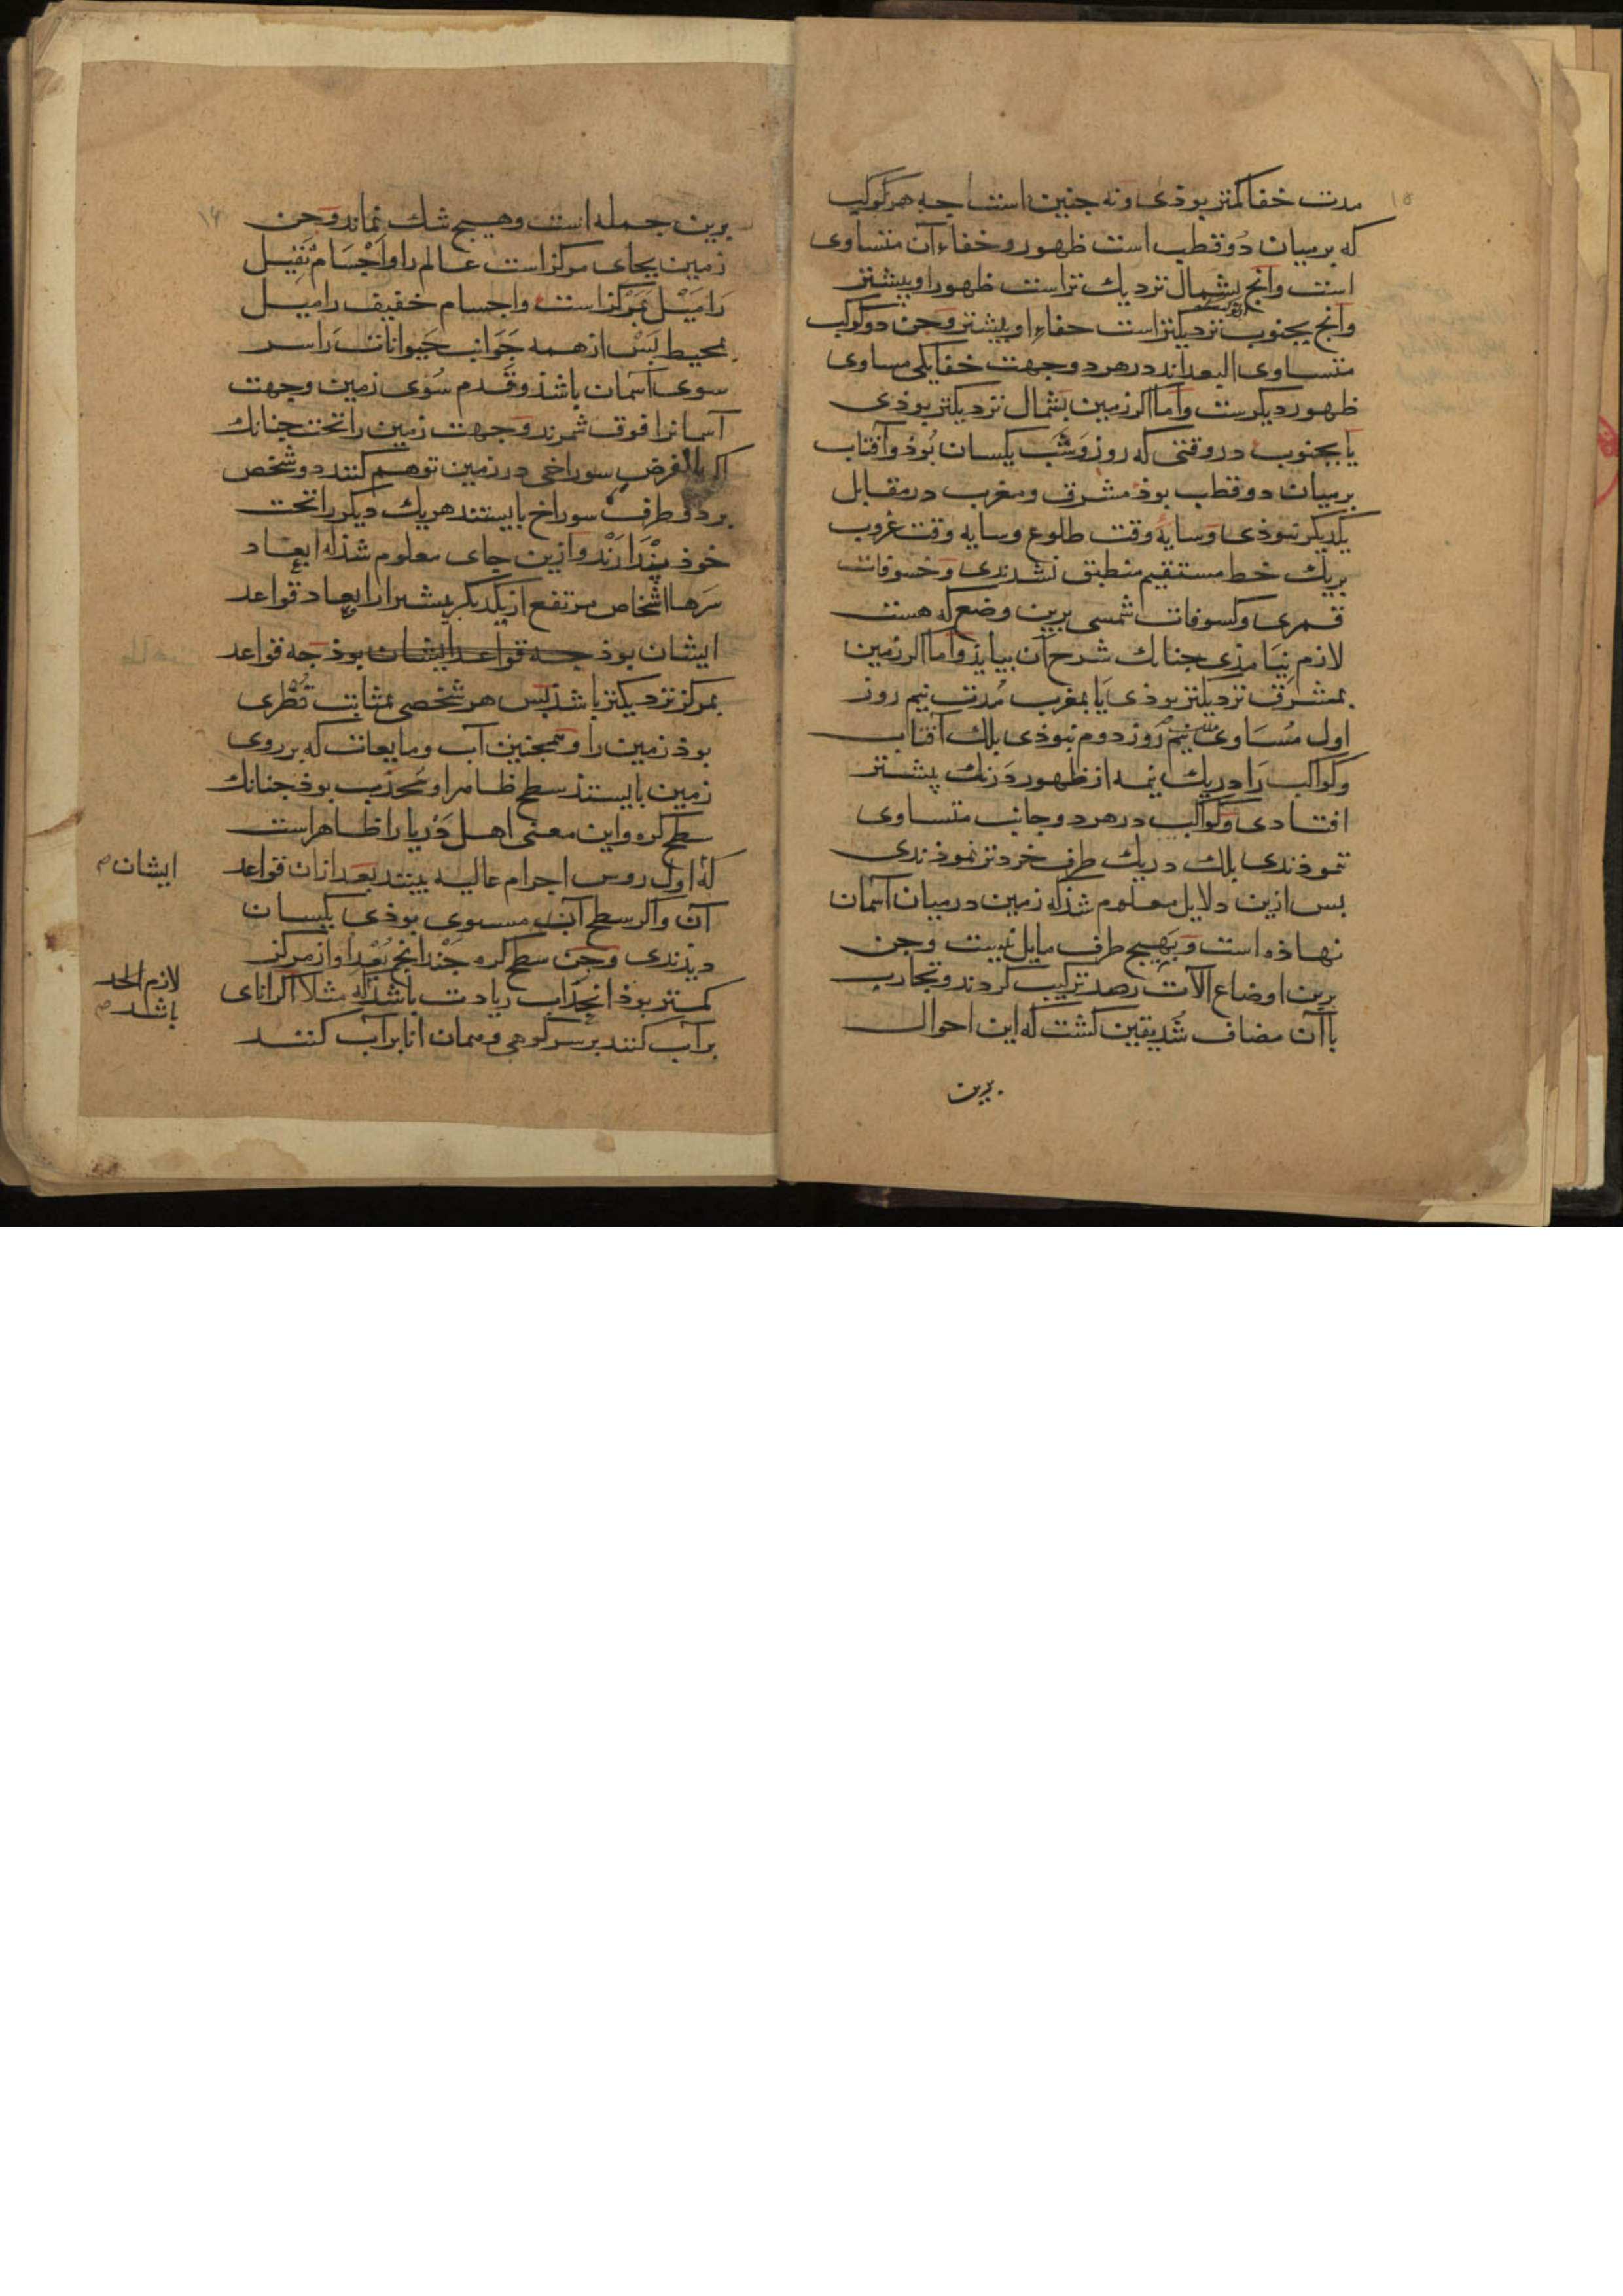 ۱۵
مدت خفا کمتر بوذی و نه جنین است جه هر کوکب
که بر میان دو قطب است ظهور و خفاء آن متساوی
است وانج بشمال نزدیك تر است ظهور او بیشتر
وانج بجنوب نزدیکتر است خفاء او بیشتر وجن دو کوکب
متساوی البعد اند در هر دو جهت خفا یکی مساوی
ظهور دیکرست واما اکر زمین بشمال نزدیکتر بوذی
یا بجنوب در وقتی که روز و شب یکسان بوذ وآفتاب
بر میان دو قطب بوذ مشرق و مغرب در مقابل
یکدیکر نبوذی وسایۀ وقت طلوع وسایه وقت غروب
بریك خط مستقیم منطبق نشدندی وخسوفات
قمری وکسوفات شمسی برین وضع که هست
لازم نیامذی جنانك شرح آن بیایذ واما اکر زمین
بمشرق نزدیکتر بوذی یا بمغرب مدت نیم روز
اول مساوی نیم روز دوم نبوذی بلك آفتاب
وکواکب را در یك نیمه از ظهور درنك بیشتر
افتادی وکواکب در هر دو جانب متساوی
ننموذندی بلك در یك طرف خردتر نموذندی
بس ازین دلایل معلوم شذ که زمین در میان آسمان
نهاذه است وبهیج طرف مایل نیست وجن
برین اوضاع آلات رصد ترکیب کردند وتجارب
با آن مضاف شد یقین کشت که این احوال
برین
۱۶
برین جمله است وهیج شك نماند وجن
زمین بجای مرکز است عالم را واجسام ثقیل
را میل بمرکز است واجسام خفیف را میل
بمحیط بس از همه جوانب حیوانات را سر
سوی آسمان باشذ وقدم سوی زمین وجهت
آسمانرا فوق شمرند وجهت زمین را تحت جنانك
اکر بالفرض سوراخی در زمین توهم کنند دو شخص
بر دو طرف سوراخ بایستند هر یك دیکر را تحت
خوذ بندارند وازین جای معلوم شذ که ابعاد
سرها اشخاص مرتفع از یکدیکر بیشتر از ابعاد قواعد
ایشان بوذ جه قواعد ایشان بوذ جه قواعد
بمرکز نزدیکتر باشذ بس هر شخصی بمثابت قطری
بوذ زمین را وهمجنین آب ومایعات که بر روی
زمین بایستند سطح ظاهر او محدب بوذ جنانك
سطح کره واین معنی اهل دریا را ظاهر است
که اول روس اجرام عالیه بینند بعد ازان قواعد
آن واکر سطح آب مستوی بوذی یکسان
دیذندی وجن سطح کره جندانج بعد او از مرکز
کمتر بوذ انحداب زیادت باشذ که مثلا اکر انای
بر آب کنند بر سر کوهی وهمان انا بر آب کنند
ایشان صح
لازم الحد
باشد صح